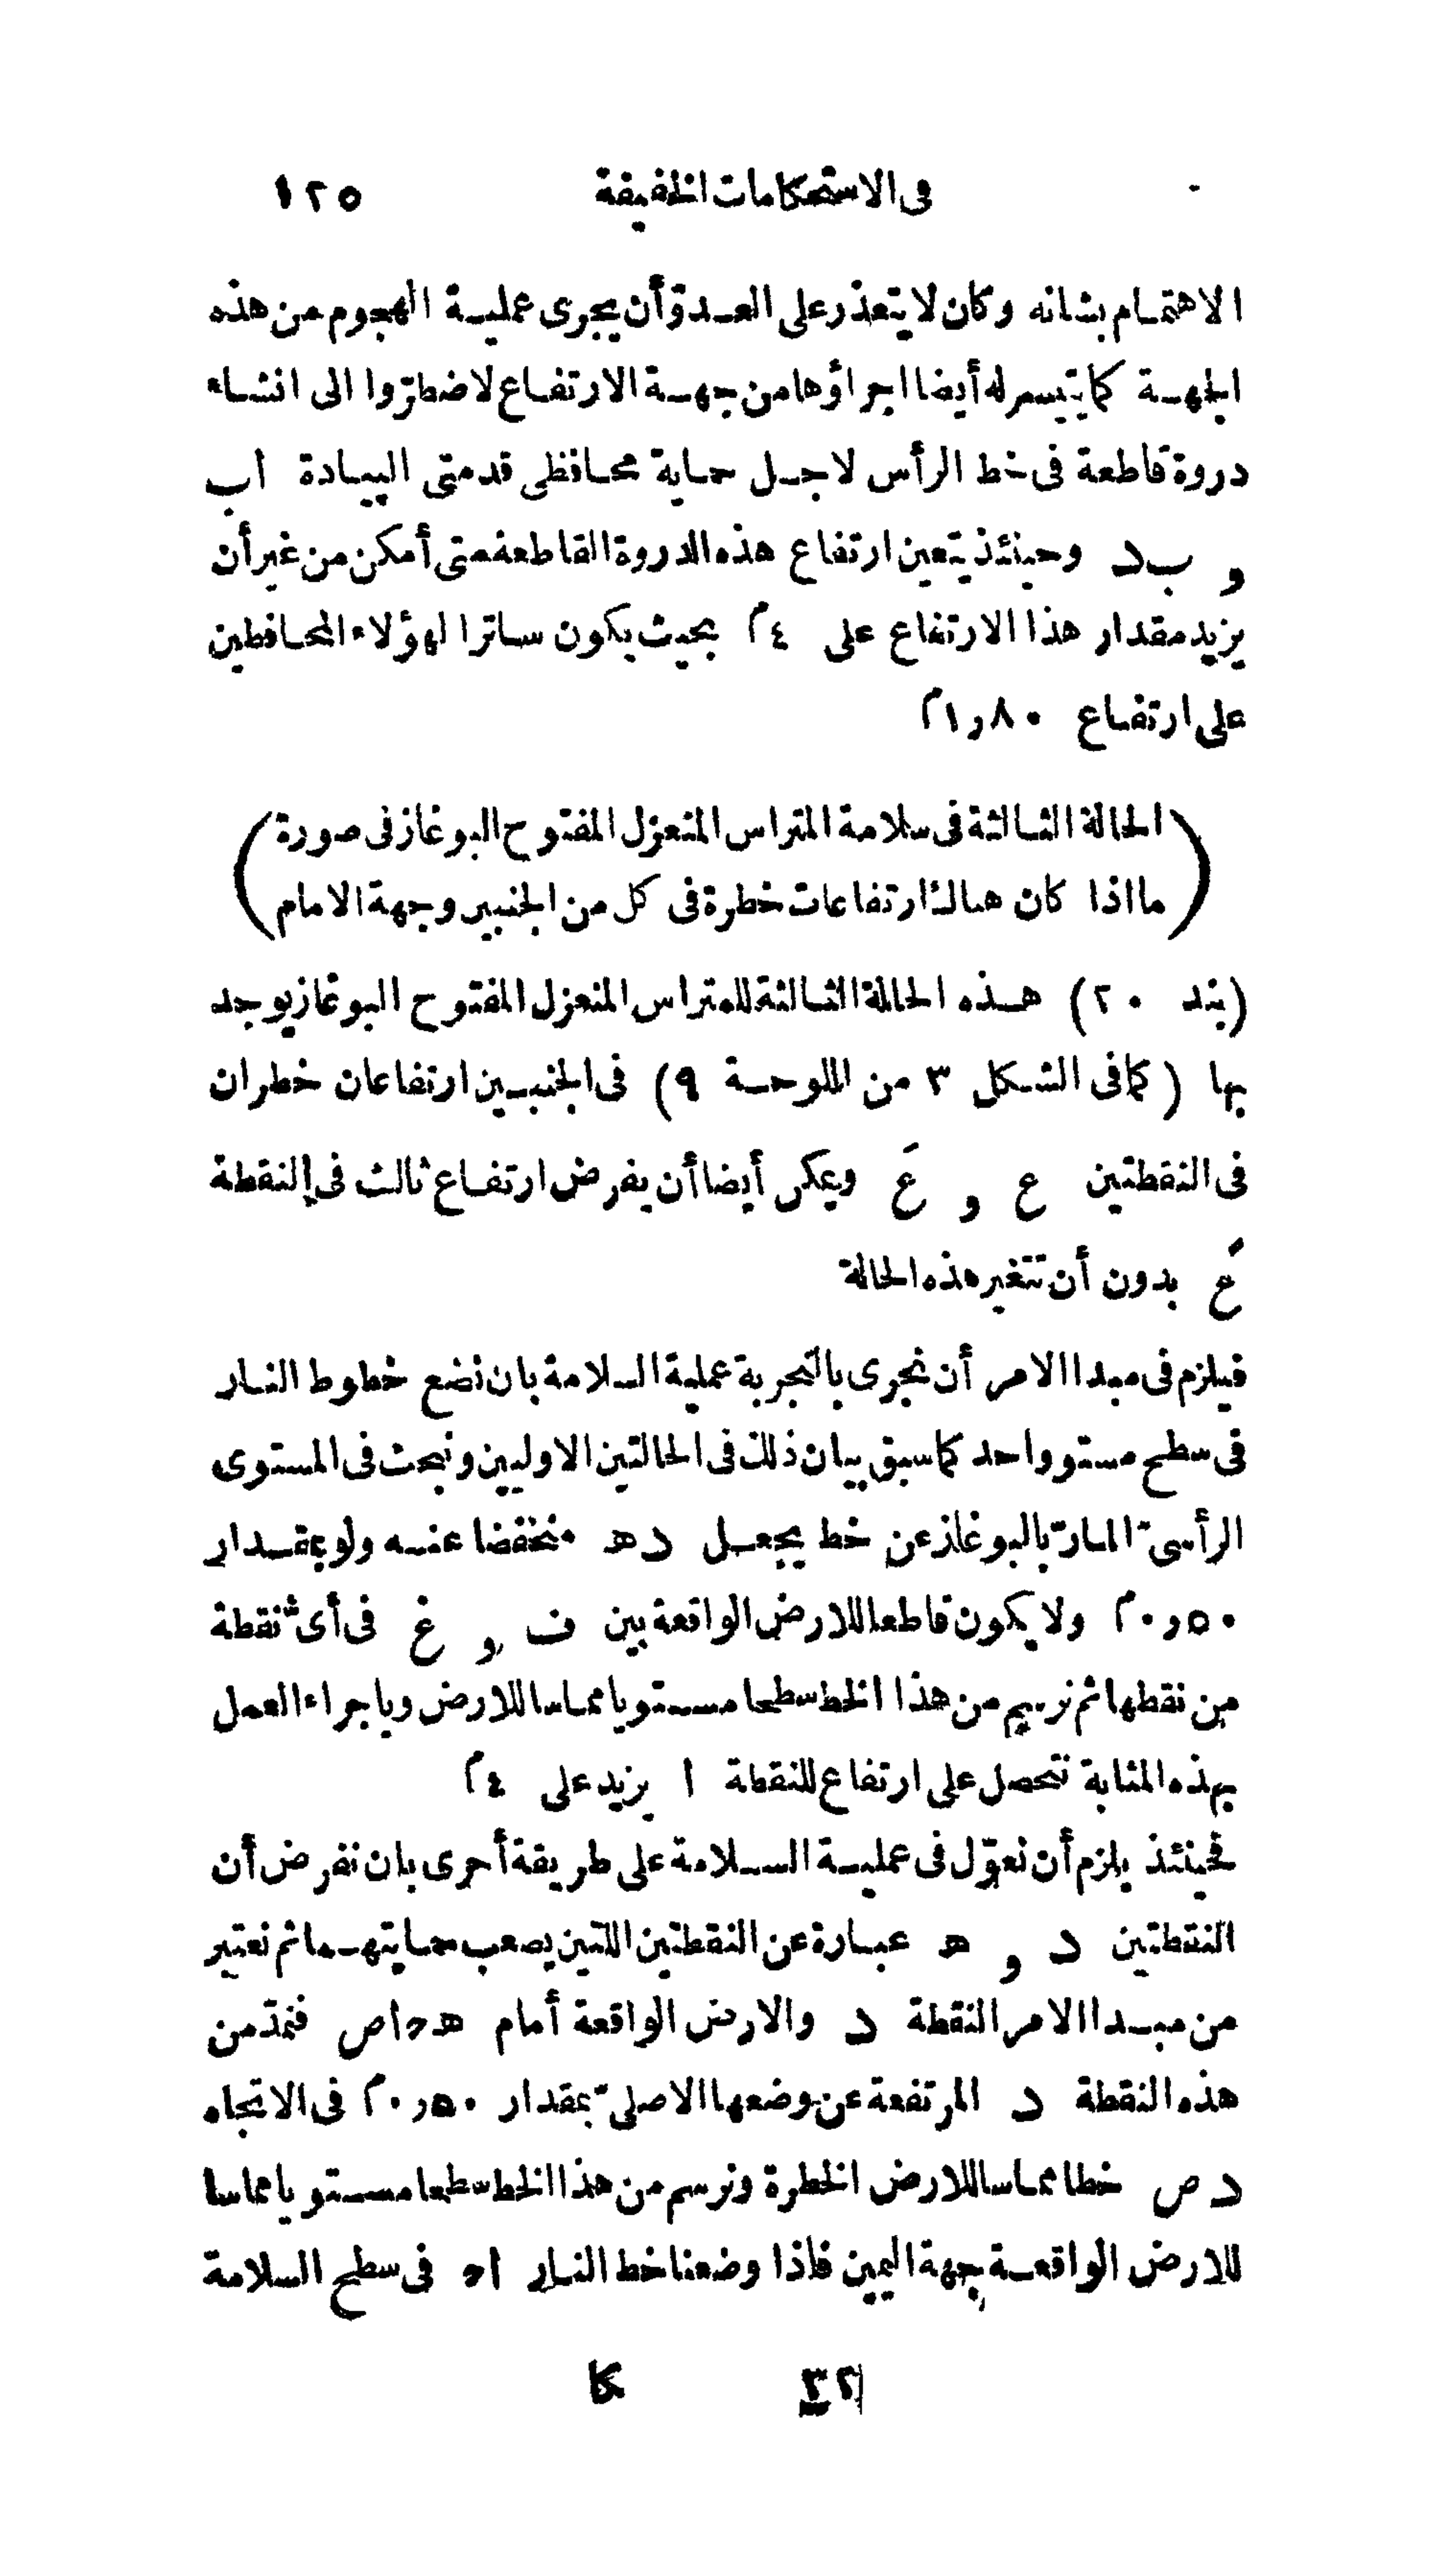 فى الاستحكامات الخفيفة ١٢٥
الاهتمام بشانه وكان لا يتعذر على العدوّ أن يجرى عملية الهجوم من هذه
الجهة كما يتيسر له أيضا اجراؤها من جهة الارتفاع لاضطرّوا الى انشاء
دروة قاطعة فى خط الرأس لاجل حماية محافظى قدمتى البيادة اب
و ب د وحينئذ يتعين ارتفاع هذه الدروة القاطعة متى أمكن من غير أن
يزيد مقدار هذا الارتفاع على ٤م بحيث يكون ساترا لهؤلاء المحافظين
على ارتفاع ١٫٨٠م
(الحالة الثالثة فى سلامة المتراس المنعزل المفتوح البوغاز فى صورة
ما اذا كان هناك ارتفاعات خطرة فى كل من الجنبين وجهة الامام)
(بند ٢٠) هذه الحالة الثالثة للمتراس المنعزل المفتوح البوغاز يوجد
بها (كما فى الشكل ٣ من اللوحة ٩) فى الجنبين ارتفاعان خطران
فى النقطتين ع و عَ ويمكن أيضا أن يفرض ارتفاع ثالث فى النقطة
عً بدون أن تتغير هذه الحالة
فيلزم فى مبدا الامر أن نجرى بالتجربة عملية السلامة بان نضع خطوط النار
فى سطح مستو واحد كما سبق بيان ذلك فى الحالتين الاوليين ونبحث فى المستوى
الرأسىّ المارّ بالبوغاز عن خط يجعل د ه منخفضا عنه ولو بمقدار
٠٫٥٠م ولا يكون قاطعا للارض الواقعة بين ف و غ فى أىّ نقطة
من نقطها ثم نرسم من هذا الخط سطحا مستويا مماسا للارض وباجراء العمل
بهذه المثابة نتحصل على ارتفاع للنقطة ا يزيد على ٤م
فحينئذ يلزم أن نعوّل فى عملية السلامة على طريقة أحرى بان نفرض أن
النقطتين د و ه عبارة عن النقطتين اللتين يصعب حمايتهما ثم نعتبر
من مبدا الامر النقطة د والارض الواقعة أمام ه ح ا ص فنمدّ من
هذه النقطة د المرتفعة عن وضعها الاصلىّ بمقدار ٠٫٥٠م فى الاتجاه
د ص خطا مماسا للارض الخطرة ونرسم من هذا الخط سطحا مستويا مماسا
للارض الواقعة جهة اليمين فاذا وضعنا خط النار اح فى سطح السلامة
٣٢ كا